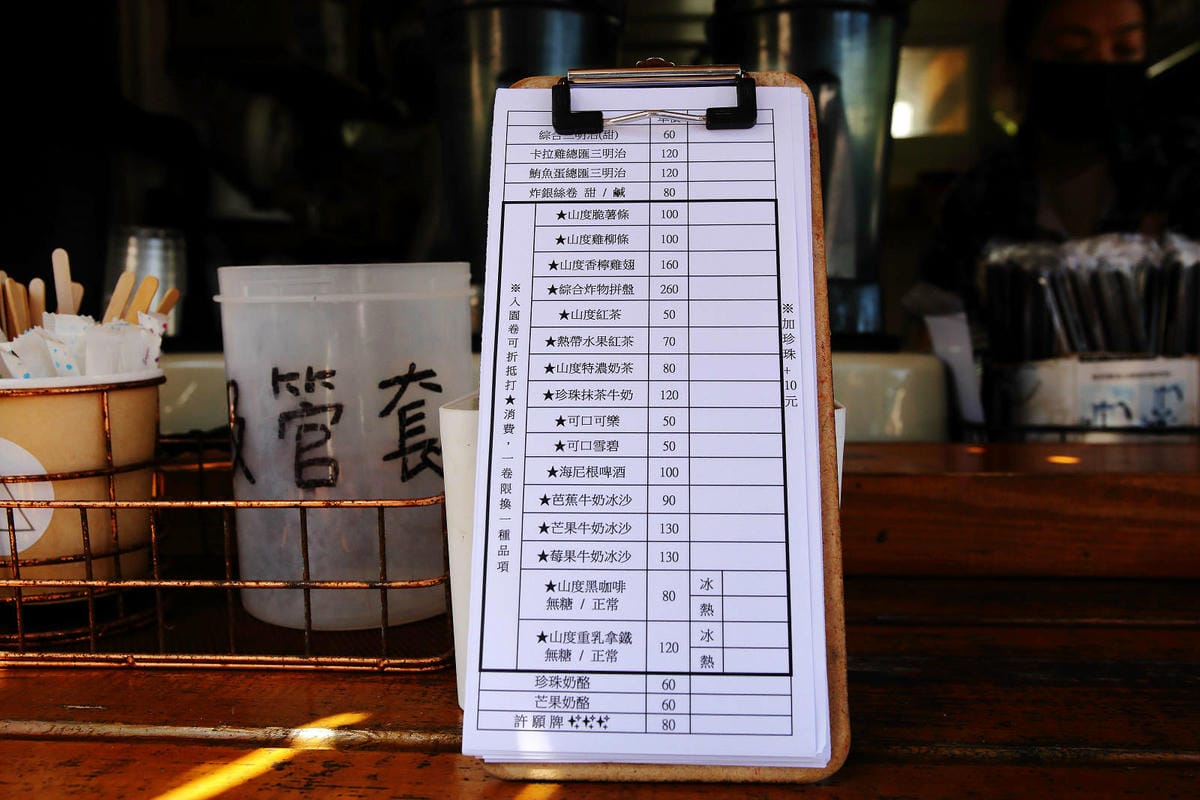 管套
單價
綜合三明治(甜) 60
卡拉雞總匯三明治 120
鮪魚蛋總匯三明治 120
炸銀絲卷 甜 / 鹹 80
※入園卷可折抵打★消費，一卷限換一種品項
★山度脆薯條 100
★山度雞柳條 100
★山度香檸雞翅 160
★綜合炸物拼盤 260
★山度紅茶 50
★熱帶水果紅茶 70
★山度特濃奶茶 80
★珍珠抹茶牛奶 120
★可口可樂 50
★可口雪碧 50
★海尼根啤酒 100
★芭蕉牛奶冰沙 90
★芒果牛奶冰沙 130
★莓果牛奶冰沙 130
★山度黑咖啡 80 冰
無糖 / 正常 熱
★山度重乳拿鐵 120 冰
無糖 / 正常 熱
※加珍珠+10元
珍珠奶酪 60
芒果奶酪 60
許願牌 80